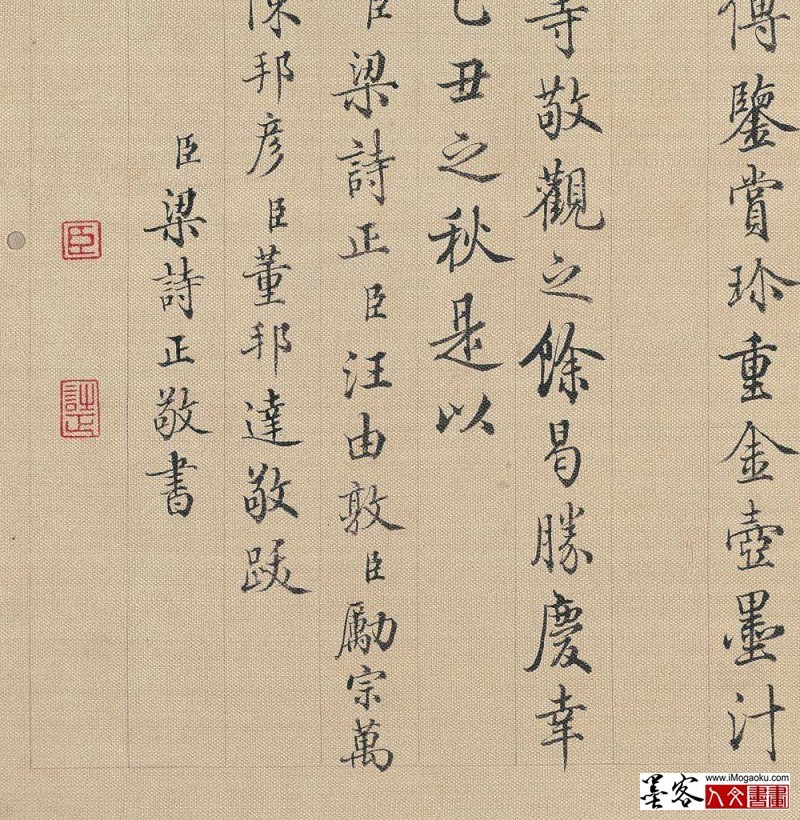 傳鑒賞珍重金壺墨汁
寺敬觀之餘曷勝慶幸
乙丑之秋是以
臣梁詩正臣汪由敦臣勵宗萬
陳邦彥臣董邦達敬跋
臣梁詩正敬書
臣
詩正
墨客
www.iMogaoku.com
人文書畫